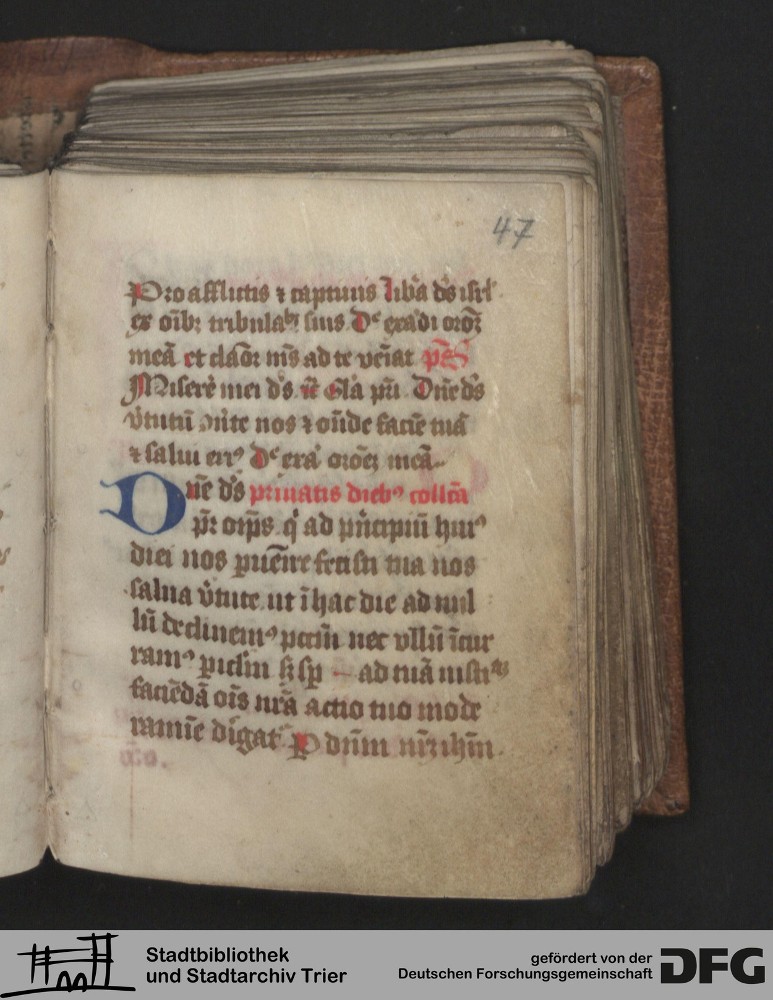 47
Pro afflictis ⁊ captiuis Liba ds isrl
ex oibꝫ tribulaībꝫ suis Dᵉ exadi oroꝫ
meā et claoꝛ ms ad te veiat pēs
Miserē mei ds Gla pri Dne ds
v̄tutū ꝯute nos ⁊ oñde faciē tuā
⁊ salui erꝰ Dᵉ exā oroēꝫ meā
Dnē ds priuatis diebꝰ collcā
pr oips q̄ ad pñcipiū huiꝰ
diei nos puenire fecisti tua nos
salua v̄tute ut ī hac die ad nul
lū declinemꝰ pccm̄ nec vllū īcur
ramꝰ piclm̄ sꝫ sp ad tuā iusti
faciēdā ois nrā actio tuo mode
ramīe dīgat P dnm̄ nrm̄ ihm̄
Stadtbibliothek
und Stadtarchiv Trier
gefördert von der
Deutschen Forschungsgemeinschaft
DFG